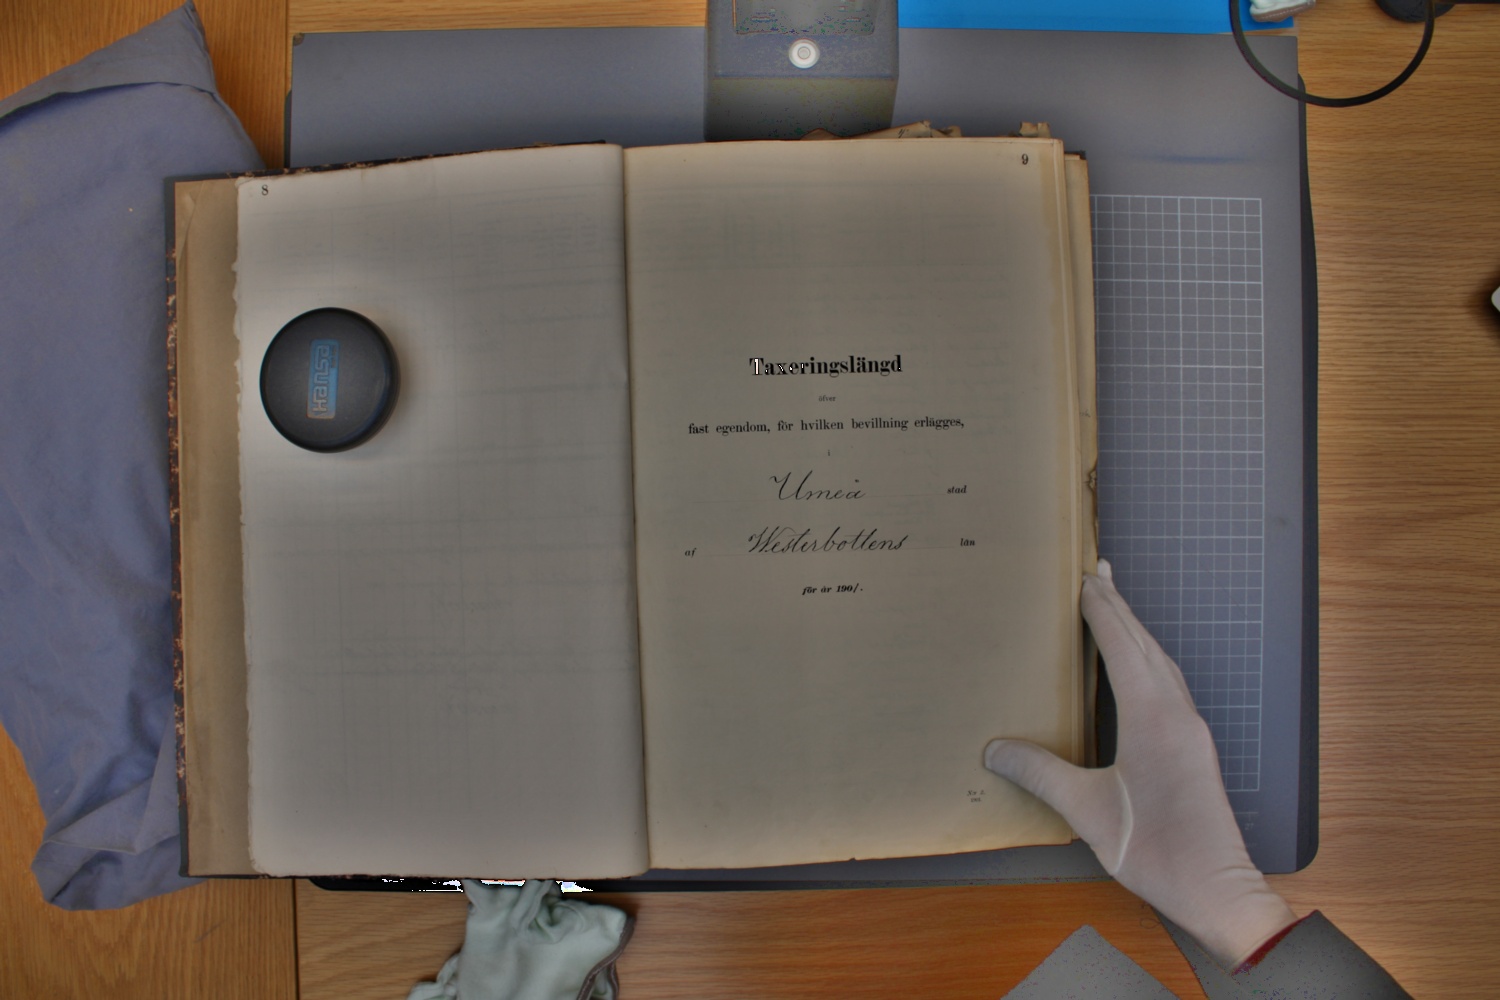 8
9
Hansa
Taxeringslängd
öfver
fast egendom, för hvilken bevillning erlägges,
i
Umeå stad
af Westerbottens län
för år 190/.
Nr 2.